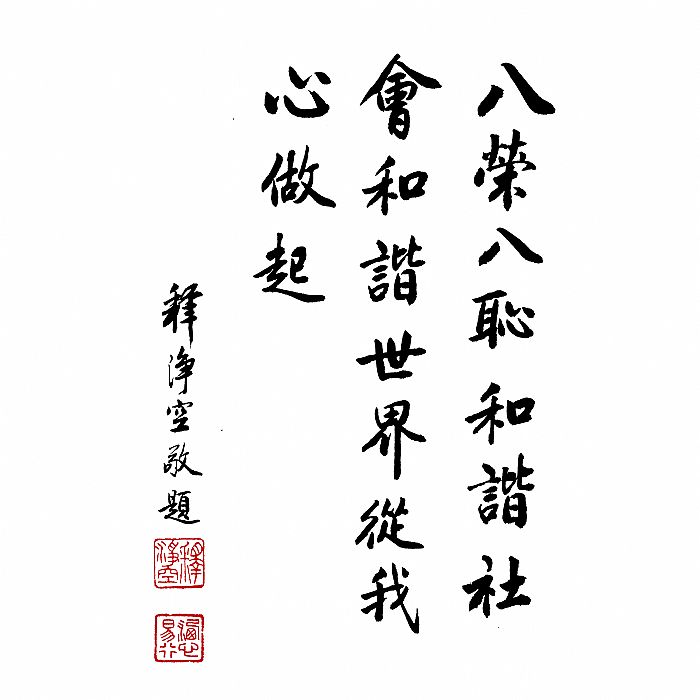 八榮八恥和諧社
會和諧世界從我
心做起
釋淨空敬題
釋淨空